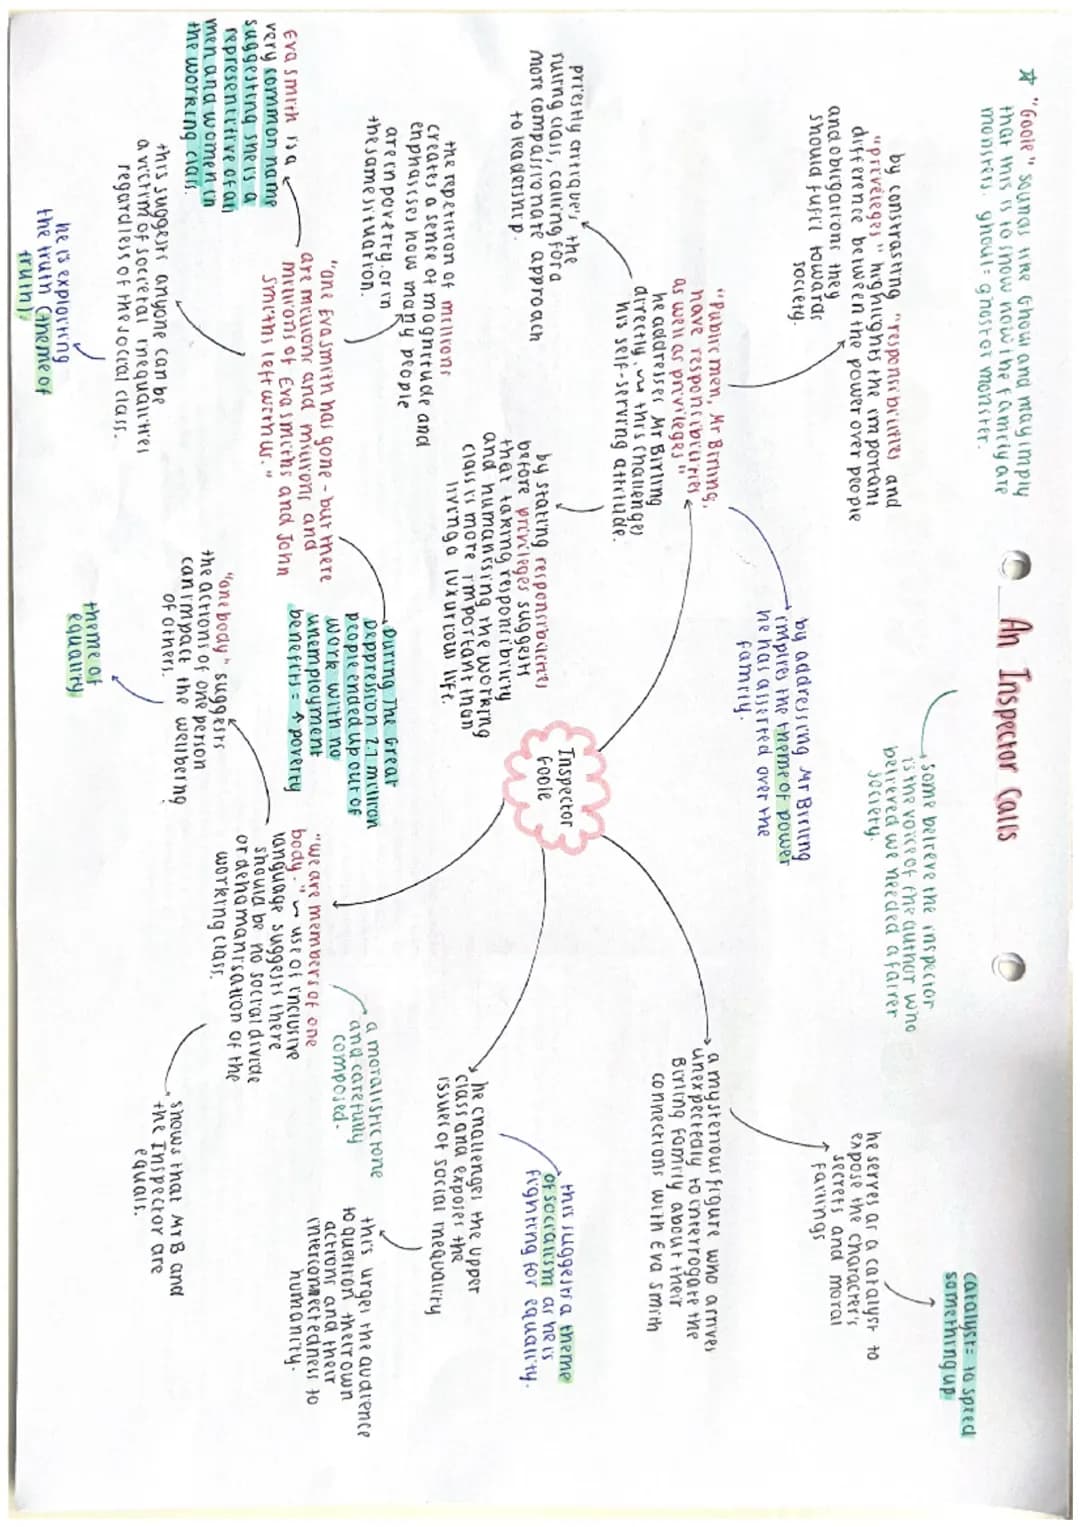 An Inspector Calls
☆ "Goole" sounds like Ghoul and may imply
that this is to show how the family are
monsters. ghoul = ghost or monster.
some believe the inspector
is the voice of the author who
believed we needed a fairer
society.
catalyst = to speed
something up
by constrasting "responsibilities and
"priveleges" highlights the important
difference between the power over people
and obligations they
should fufil towards
society.
by addressing Mr Birling
implies the theme of power
he has asserted over the
family.
he serves as a catalyst to
expose the character's
secrets and moral
failings
"Public men, Mr Birling,
have responsibilities
as well as privileges"
he addresses Mr Birling
directly. ~ this challenges
his self-serving attitude.
a mysterious figure who arrives
unexpectedly to interrogate the
Birling family about their
connections with Eva Smith
priestly critique's the
ruling class, calling for a
more compassionate approach
to leadership.
Inspector
Goole
by stating responsibilities
before privileges suggests
that taking responsibility
and humanising the working
class is more important than
living a luxurious life.
this suggests a theme
of socialism as he is
fighting for equality.
he challenges the upper
class and exposes the
issues of social inequality
this urges the audience
to question their own
actions and their
interconnectedness to
humanity.
the repetition of millions
creates a sense of magnitude and
enphasses how many people
are in poverty, or in
the same situation.
"one Eva smith has gone - but there
are millions and millions and
millions of Eva smiths and John
Smiths left with us."
During The Great
Deppression 2.7 million
people ended up out of
work with no
unemployment
benefits = ↑ poverty
"we are members of one
body." ~ use of inclusive
language suggests there
should be no social divide
or dehomanisation of the
working class.
a moralistic tone
and carefully
composed.
Eva smith is a
very common name
suggesting she is a
representitive of all
men and women in
the working class.
this suggests anyone can be
a victim of societal inequalities
regardless of the social class.
he is exploiting
the truth (theme of
truth).
"one body" suggests
the actions of one person
can impact the wellbeing
of others.
theme of
equality
shows that Mr B and
the Inspector are
equals.